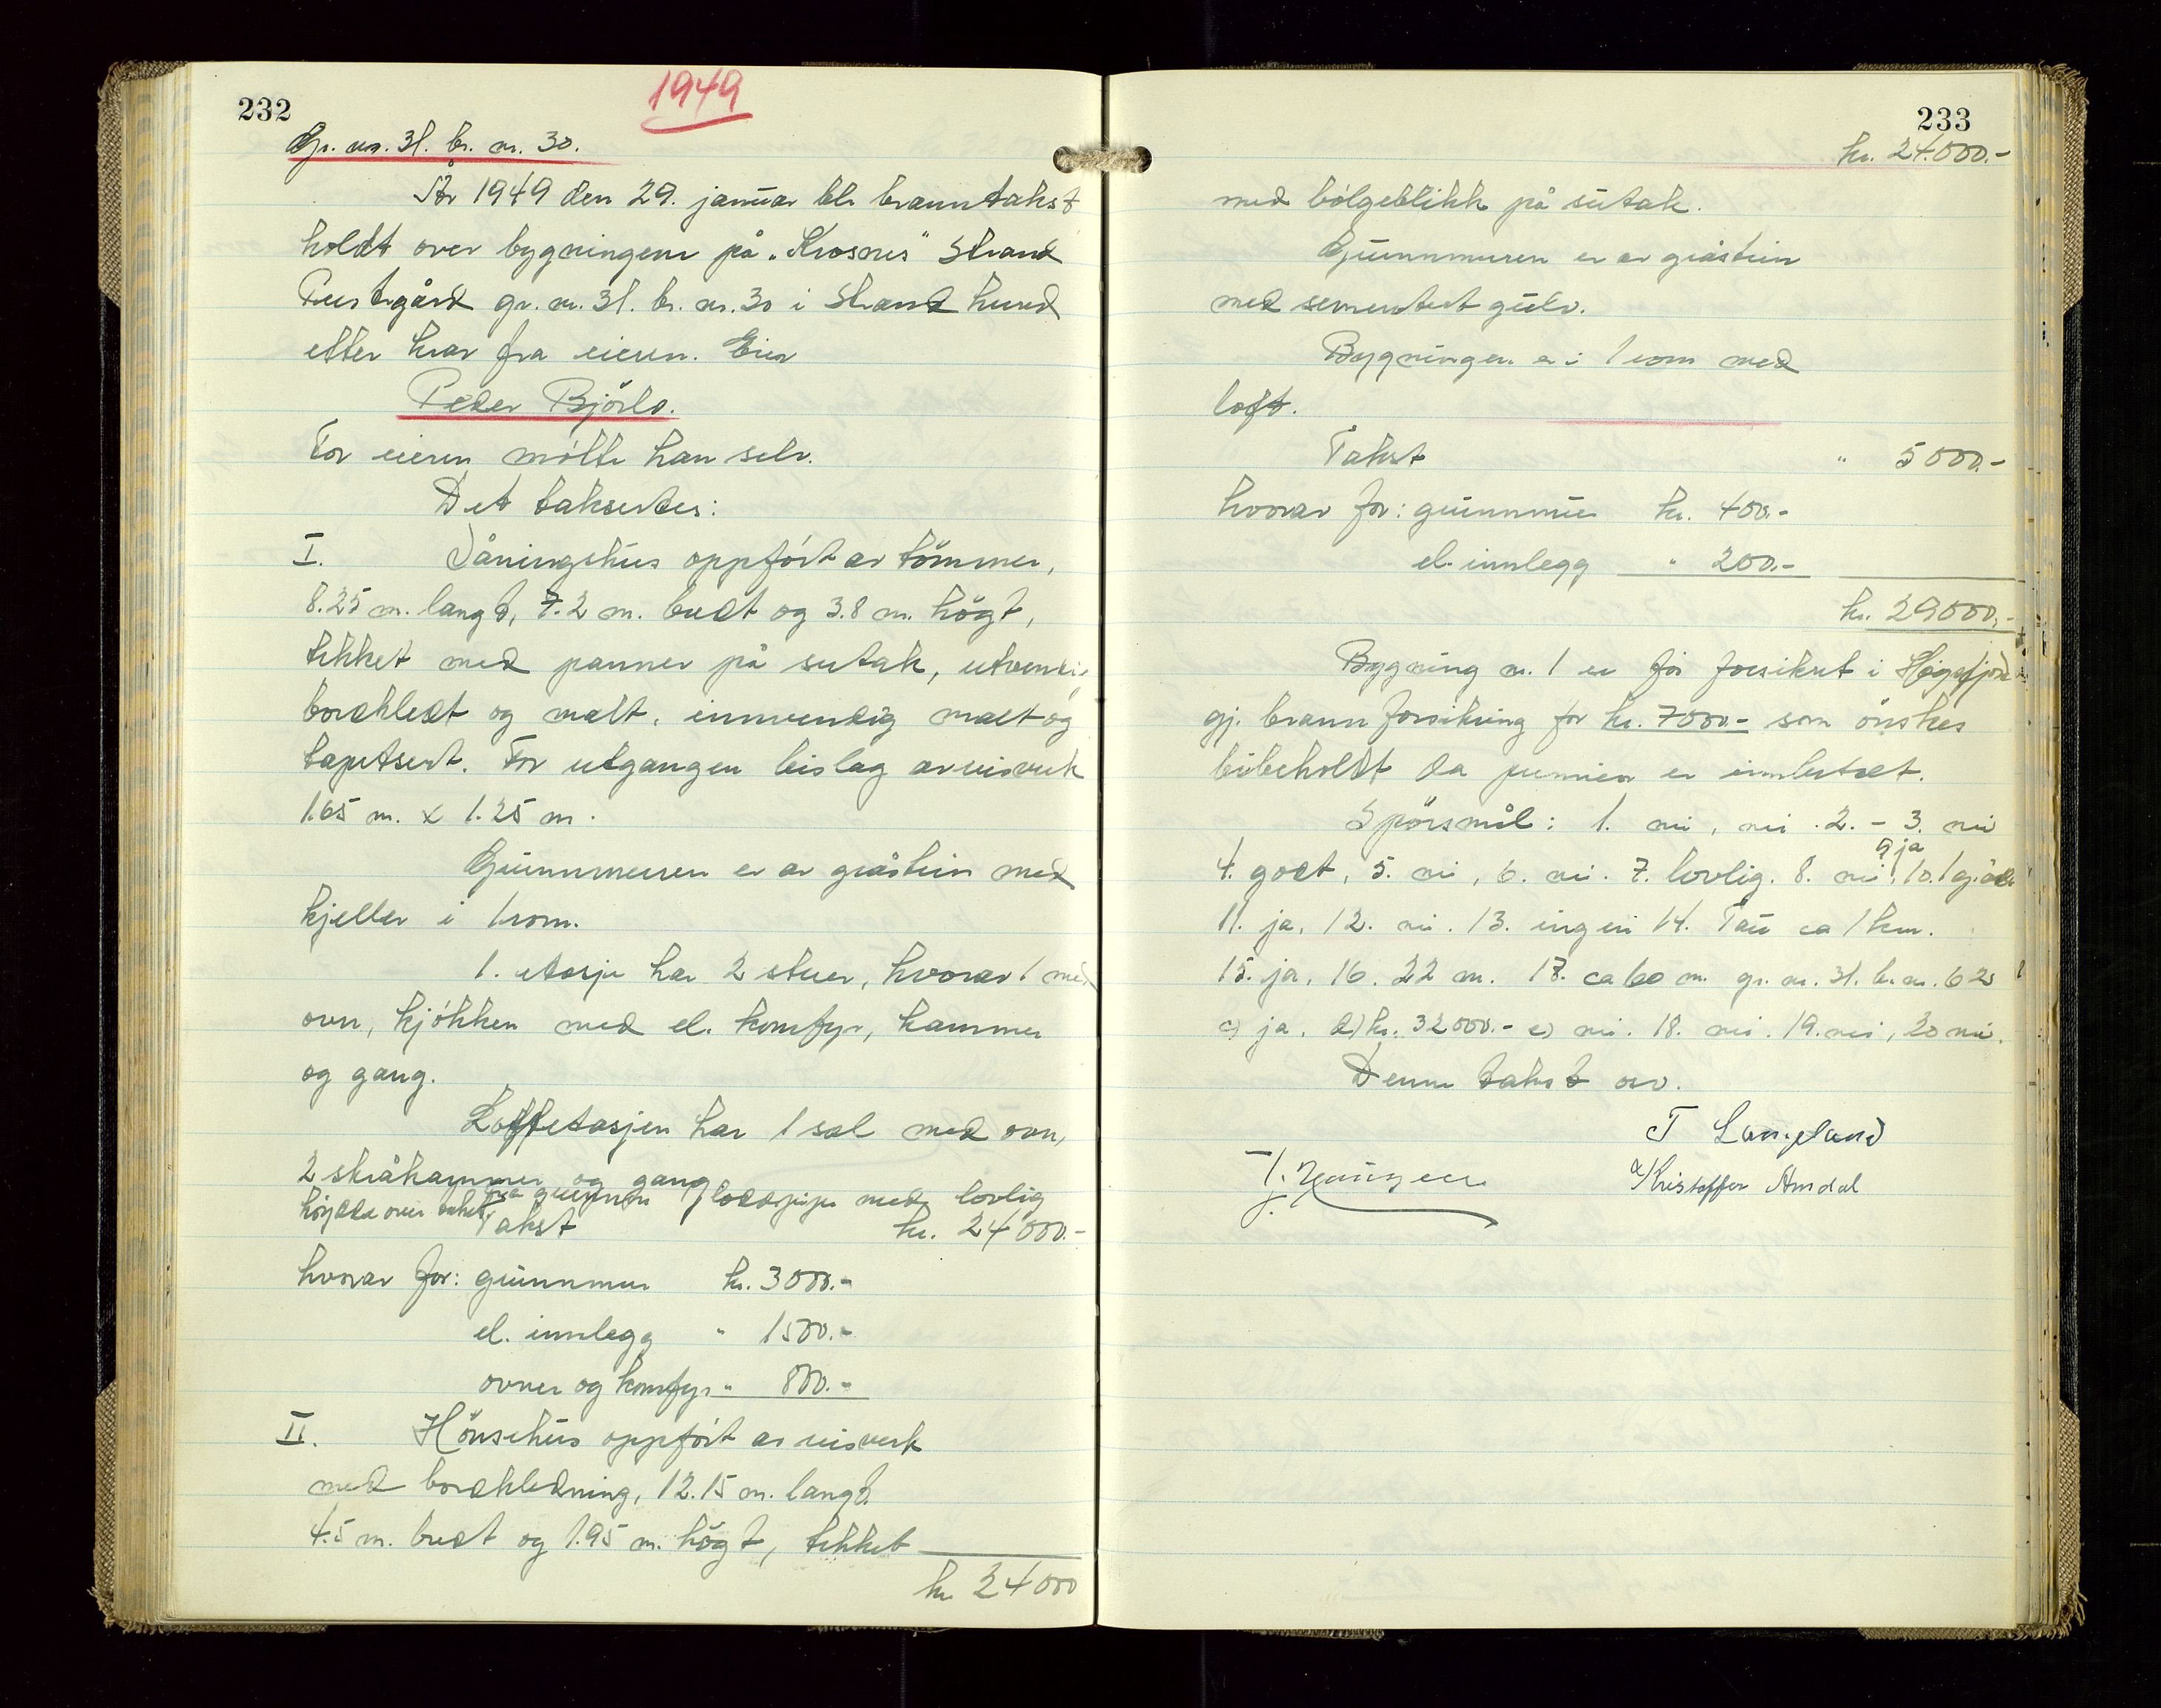 232
1949
Gr. nr. 31. br. nr. 30.
År 1949 den 29. januar ble branntakst
holdt over bygningene på "Krosnes" Strand
Prestegård gr. nr. 31. br. nr. 30 i Strand herred
etter krav fra eieren. Eier
Peder Björlo.
For eieren mötte han selv.
Det taksertes:
I. Våningshus oppfört av tömmer,
8.25 m. langt, 7.2 m. bredt og 3.8 m. högt,
tekket med panner på sutak, utvendig
bordkledt og malt, innvendig malt og
tapetsert. For utgangen bislag av reisverk
1.65 m. x 1.25 m.
Grunnmuren er av gråstein med
kjeller i 1 rom.
1. etasje har 2 stuer, hvorav 1 med
ovn, kjökken med el. komfyr, kammer
og gang.
Loftetasjen har 1 sal med ovn,
2 skråkammer og gang.
Fra grunnen 1 loddpipe med lovlig
höyde over taket.
Takst kr. 24000.-
hvorav for: grunnmur kr. 3000.-
el. innlegg " 1500.-
ovner og komfyr " 800.-
II. Hönsehus oppfört av reisverk
med bordkledning, 12.15 m. langt.
4.5 m. bredt og 1.95 m. högt, tekket
kr 24000
233
kr. 24.000.-
med bölgeblikk på sutak.
Grunnmuren er av gråstein
med sementert gulv.
Bygningen er i 1 rom med
loft.
Takst " 5000.-
hvorav for: grunnmur kr. 400.-
el. innlegg " 200.-
kr. 29000.-
Bygning nr. 1 er för forsikret i Högsfjord
gj. brannforsikring for kr. 7000.- som önskes
bibeholdt da premien er innbetalt.
Spörsmål: 1. nei, nei. 2. - 3. nei
9 ja
4. godt, 5. nei, 6. nei. 7. lovlig. 8. nei, 10. 1
11. ja, 12. nei. 13. ingen 14. Tau ca 1 km.
15. ja, 16. 22 m. 17. ca 60 m. gr. nr. 31. br. nr. 6 2)
c) ja, d) kr. 32000.- e) nei. 18. nei. 19. nei, 20 nei.
Denne takst osv.
T Langeland
Kristoffer Amdal